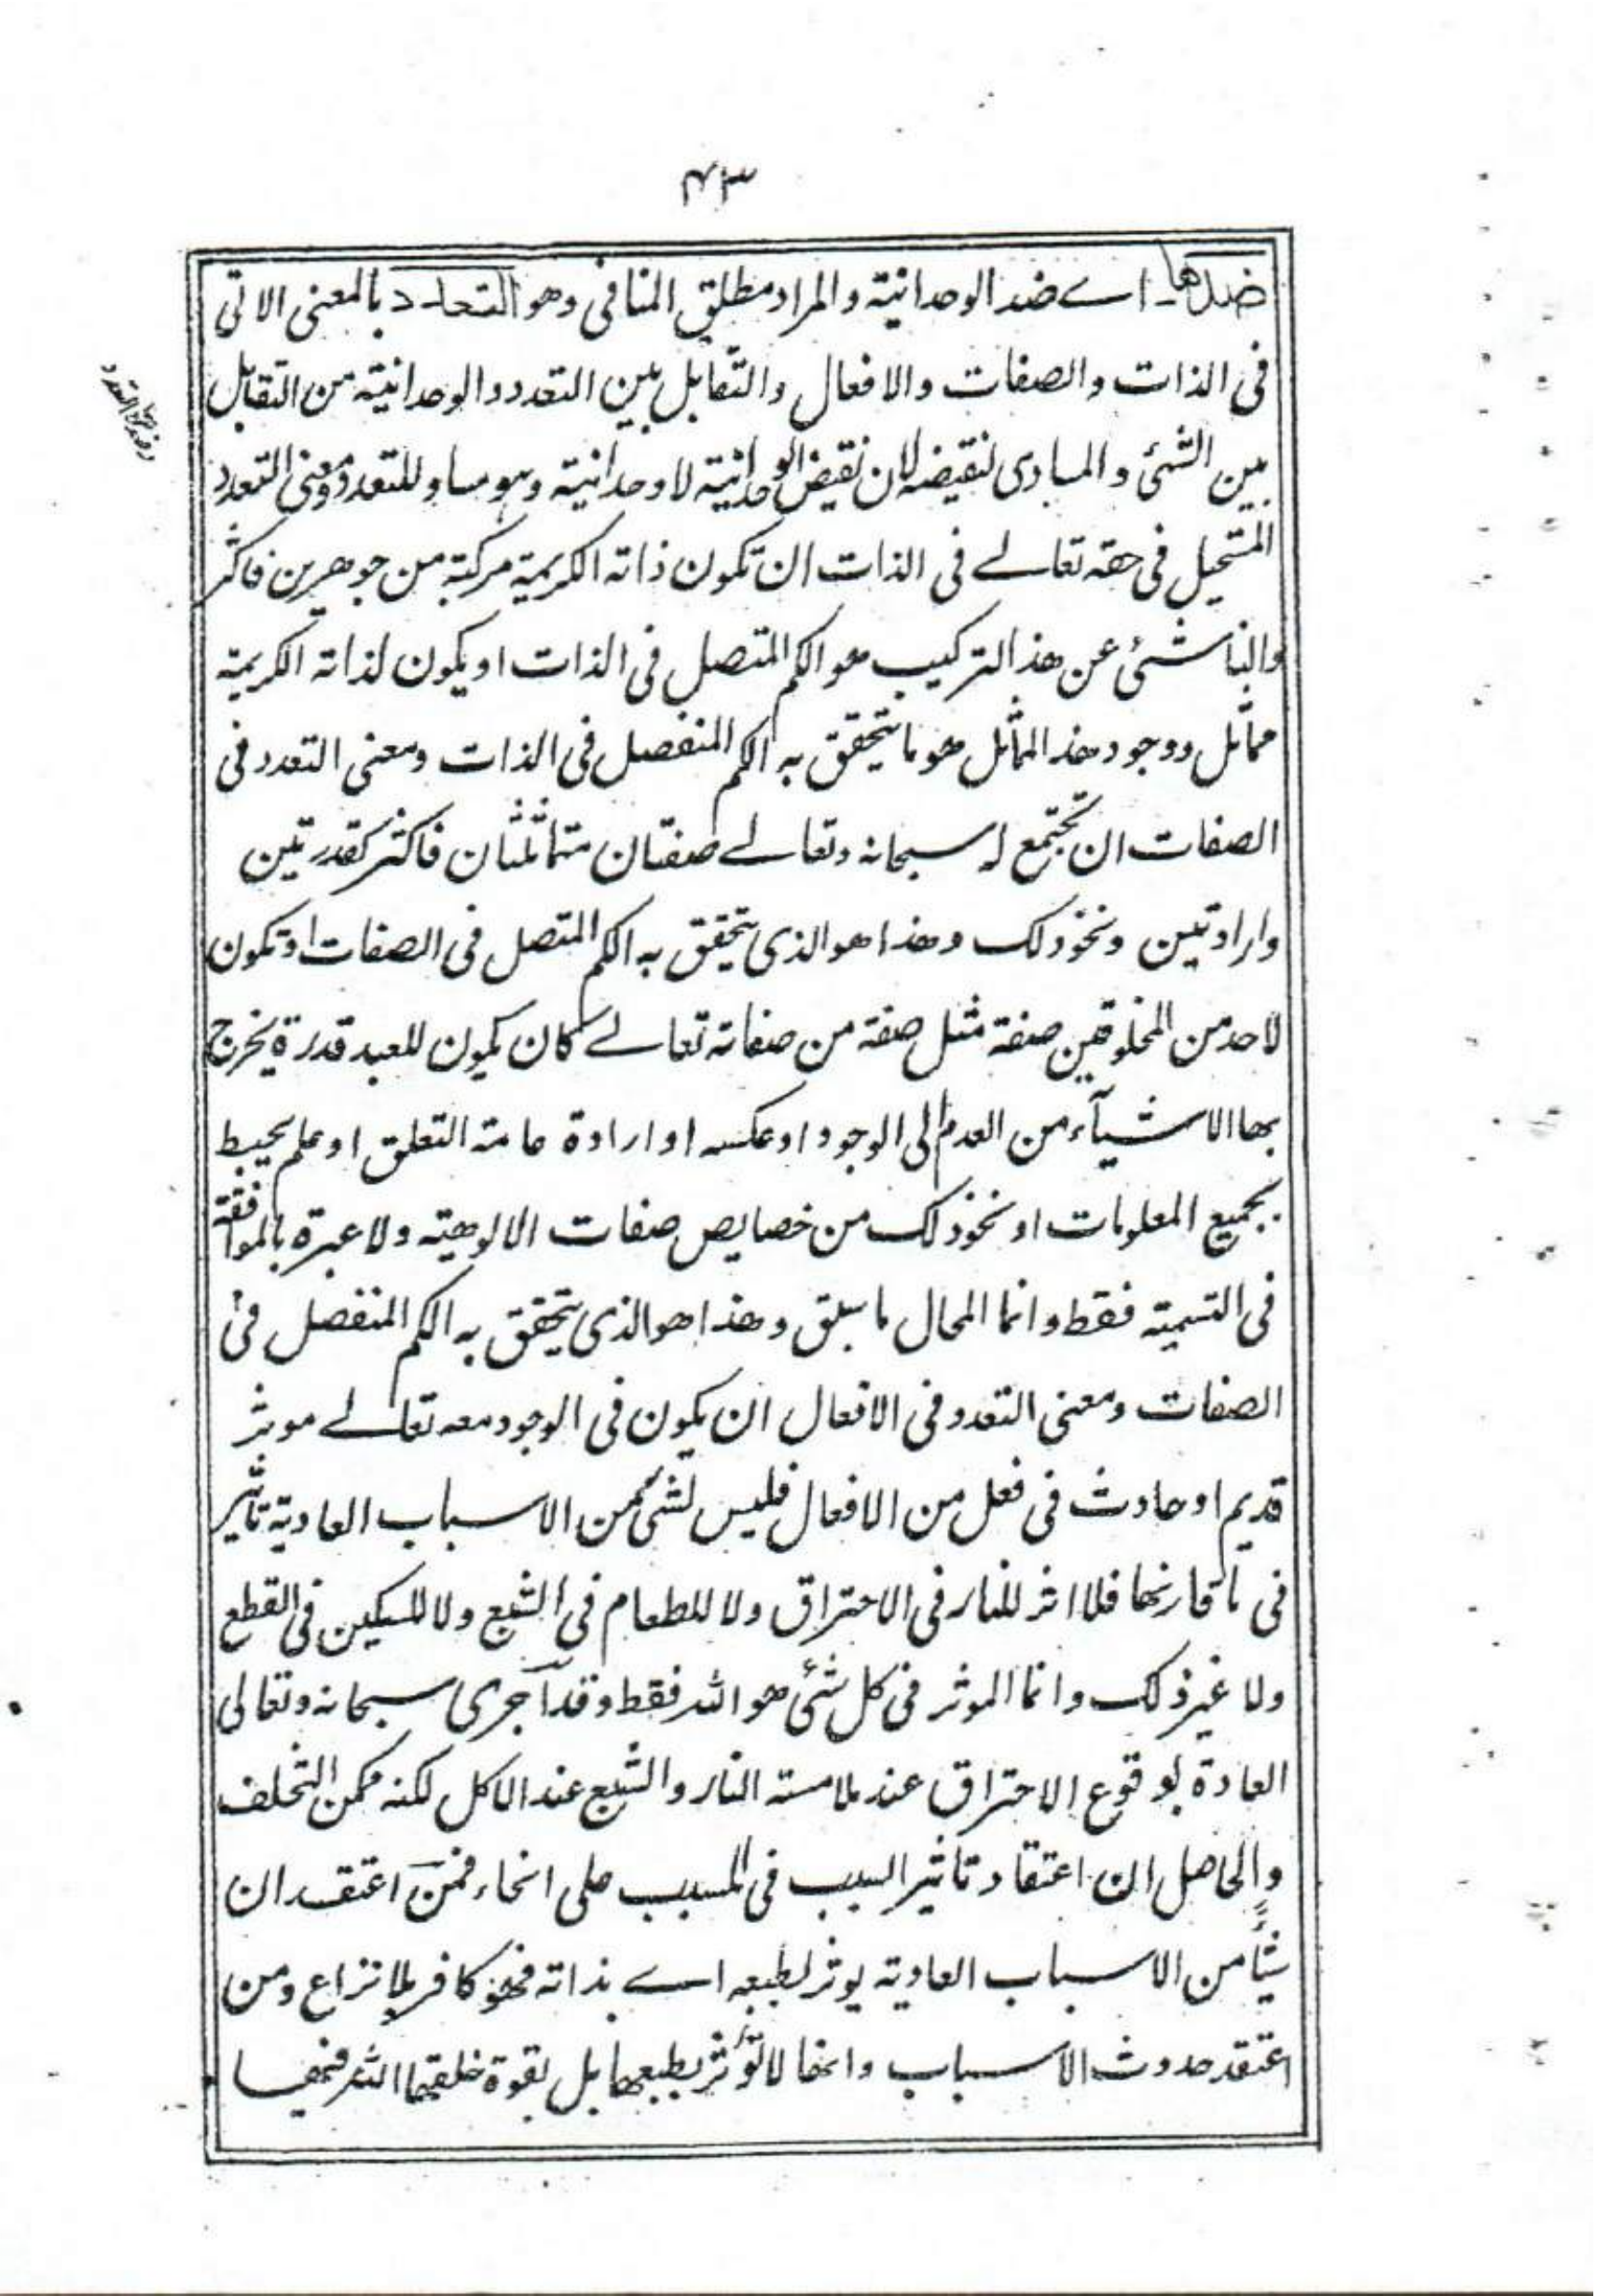 ٤٣
ضدها اے ضد الوحدانية والمراد مطلق المنافى وهو التعدد بالمعنى الاتى
فى الذات والصفات والافعال والتقابل بين التعدد والوحدانية من التقابل
بين الشئ والمساوى لنقيضه لان نقيض الوحدانية لا وحدانية وهو مساو للتعدد ومعنى التعدد
المستحيل فى حقه تعالے فى الذات ان تكون ذاته الكريمة مركبة من جوهرين فاكثر
والناشئ عن هذ التركيب هو الكم المتصل فى الذات او يكون لذاته الكريمة
مماثل ووجود هذ المماثل هو ما يتحقق به الكم المنفصل فى الذات ومعنى التعدد فى
الصفات ان تجتمع له سبحانه وتعالے صفتان متماثلتان فاكثر كقدرتين
وارادتين ونحو ذلك وهذا هو الذى يتحقق به الكم المتصل فى الصفات او تكون
لاحد من المخلوقين صفة مثل صفة من صفاته تعالے كان يكون للعبد قدرة يخرج
بها الاشيآء من العدم الى الوجود او عكسه او ارادة عامة التعلق او علم يحيط
بجميع المعلومات او نحو ذلك من خصايص صفات الالوهية ولا عبرة بالموافقة
فى التسمية فقط وانما المحال ما سبق وهذا هو الذى يتحقق به الكم المنفصل فى
الصفات ومعنى التعدد فى الافعال ان يكون فى الوجود معه تعالے موثر
قديم او حادث فى فعل من الافعال فليس لشئ من الاسباب العادية تأثير
فى ما قارنها فلا اثر للنار فى الاحتراق ولا للطعام فى الشبع ولا للسكين فى القطع
ولا غير ذلك وانما الموثر فى كل شئ هو الله فقط وقد آجرى سبحانه وتعالى
العادة بوقوع الاحتراق عند ملامسته النار والشبع عند الاكل لكنه ممكن التخلف
والحاصل ان اعتقاد تاثير السبب فى المسبب على انحاء فمن اعتقد ان
شئًا من الاسباب العادية يوثر لطبعه اے بذاته فهو كافر بلا نزاع ومن
اعتقد حدوث الاسباب وانها لا تؤثر بطبعها بل بقوة خلقها الله فيها